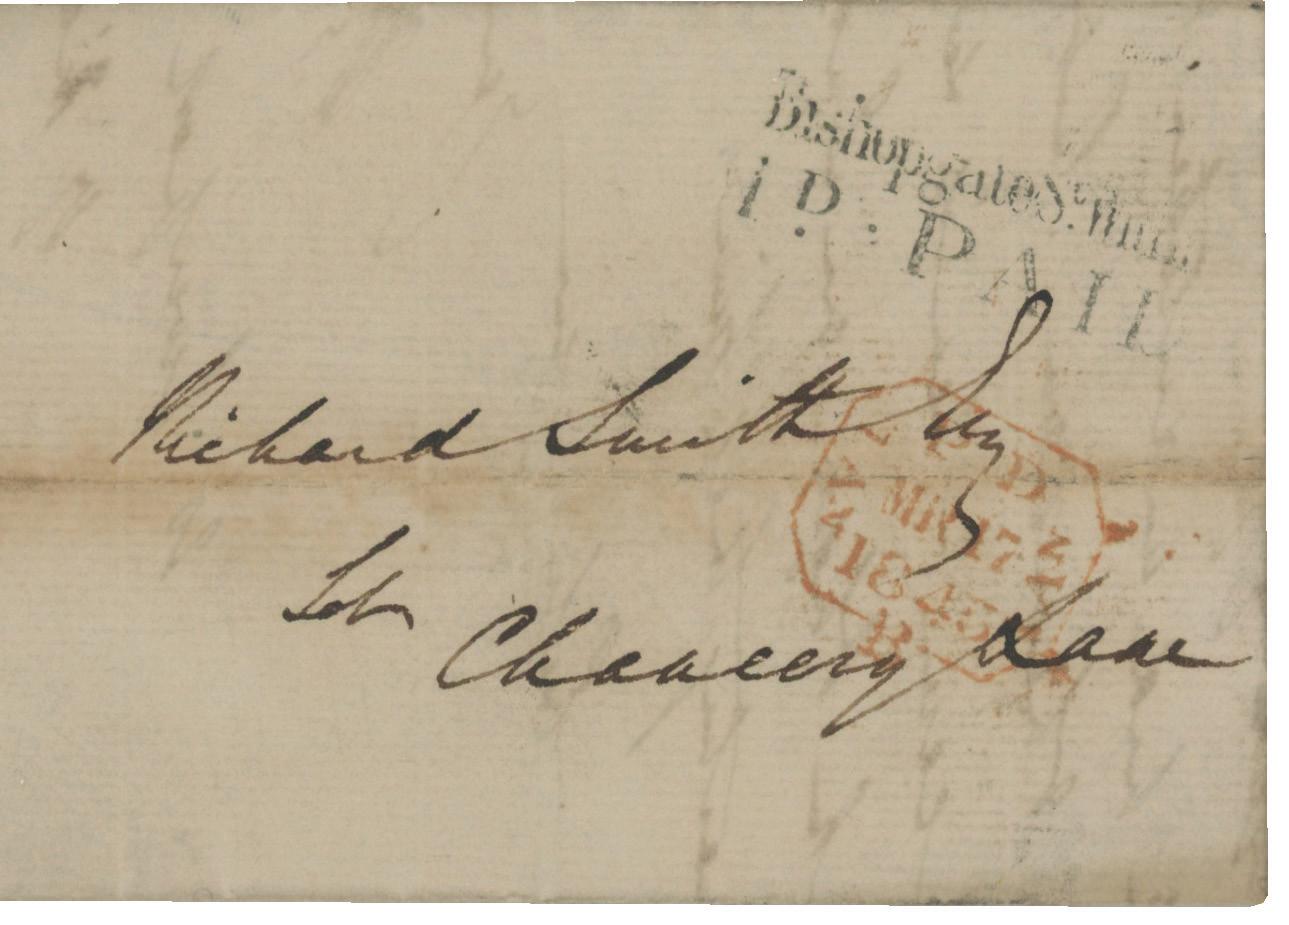 Bishopgate St. Within
1D: PAID
Richard Smith Esq
Chancery Lane
MR 17
1843
B